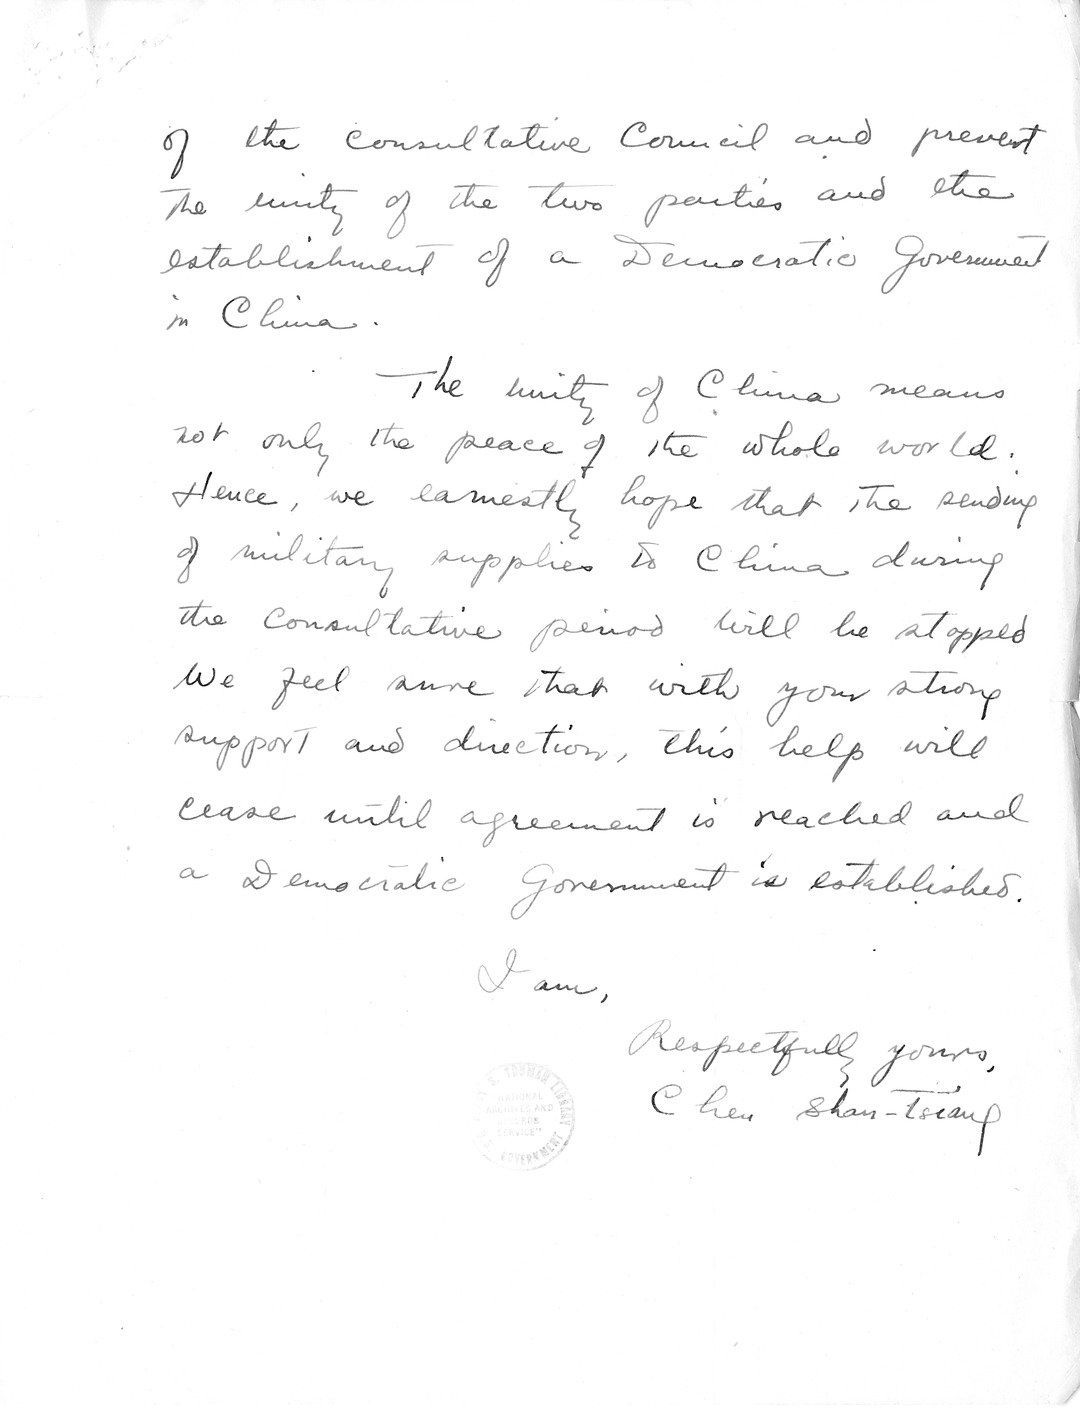 of the Consultative Council and prevent
the unity of the two parties and the
establishment of a Democratic Government
in China.
The unity of China means
not only the peace of the whole world.
Hence, we earnestly hope that the sending
of military supplies to China during
the Consultative period will be stopped
We feel sure that with your strong
support and direction, this help will
cease until agreement is reached and
a Democratic Government is established.
I am,
Respectfully yours,
Chen Shan-Tsiang
S. TRUMAN LIBRARY
NATIONAL
ARCHIVES AND
RECORDS
SERVICE
U.S. GOVERNMENT